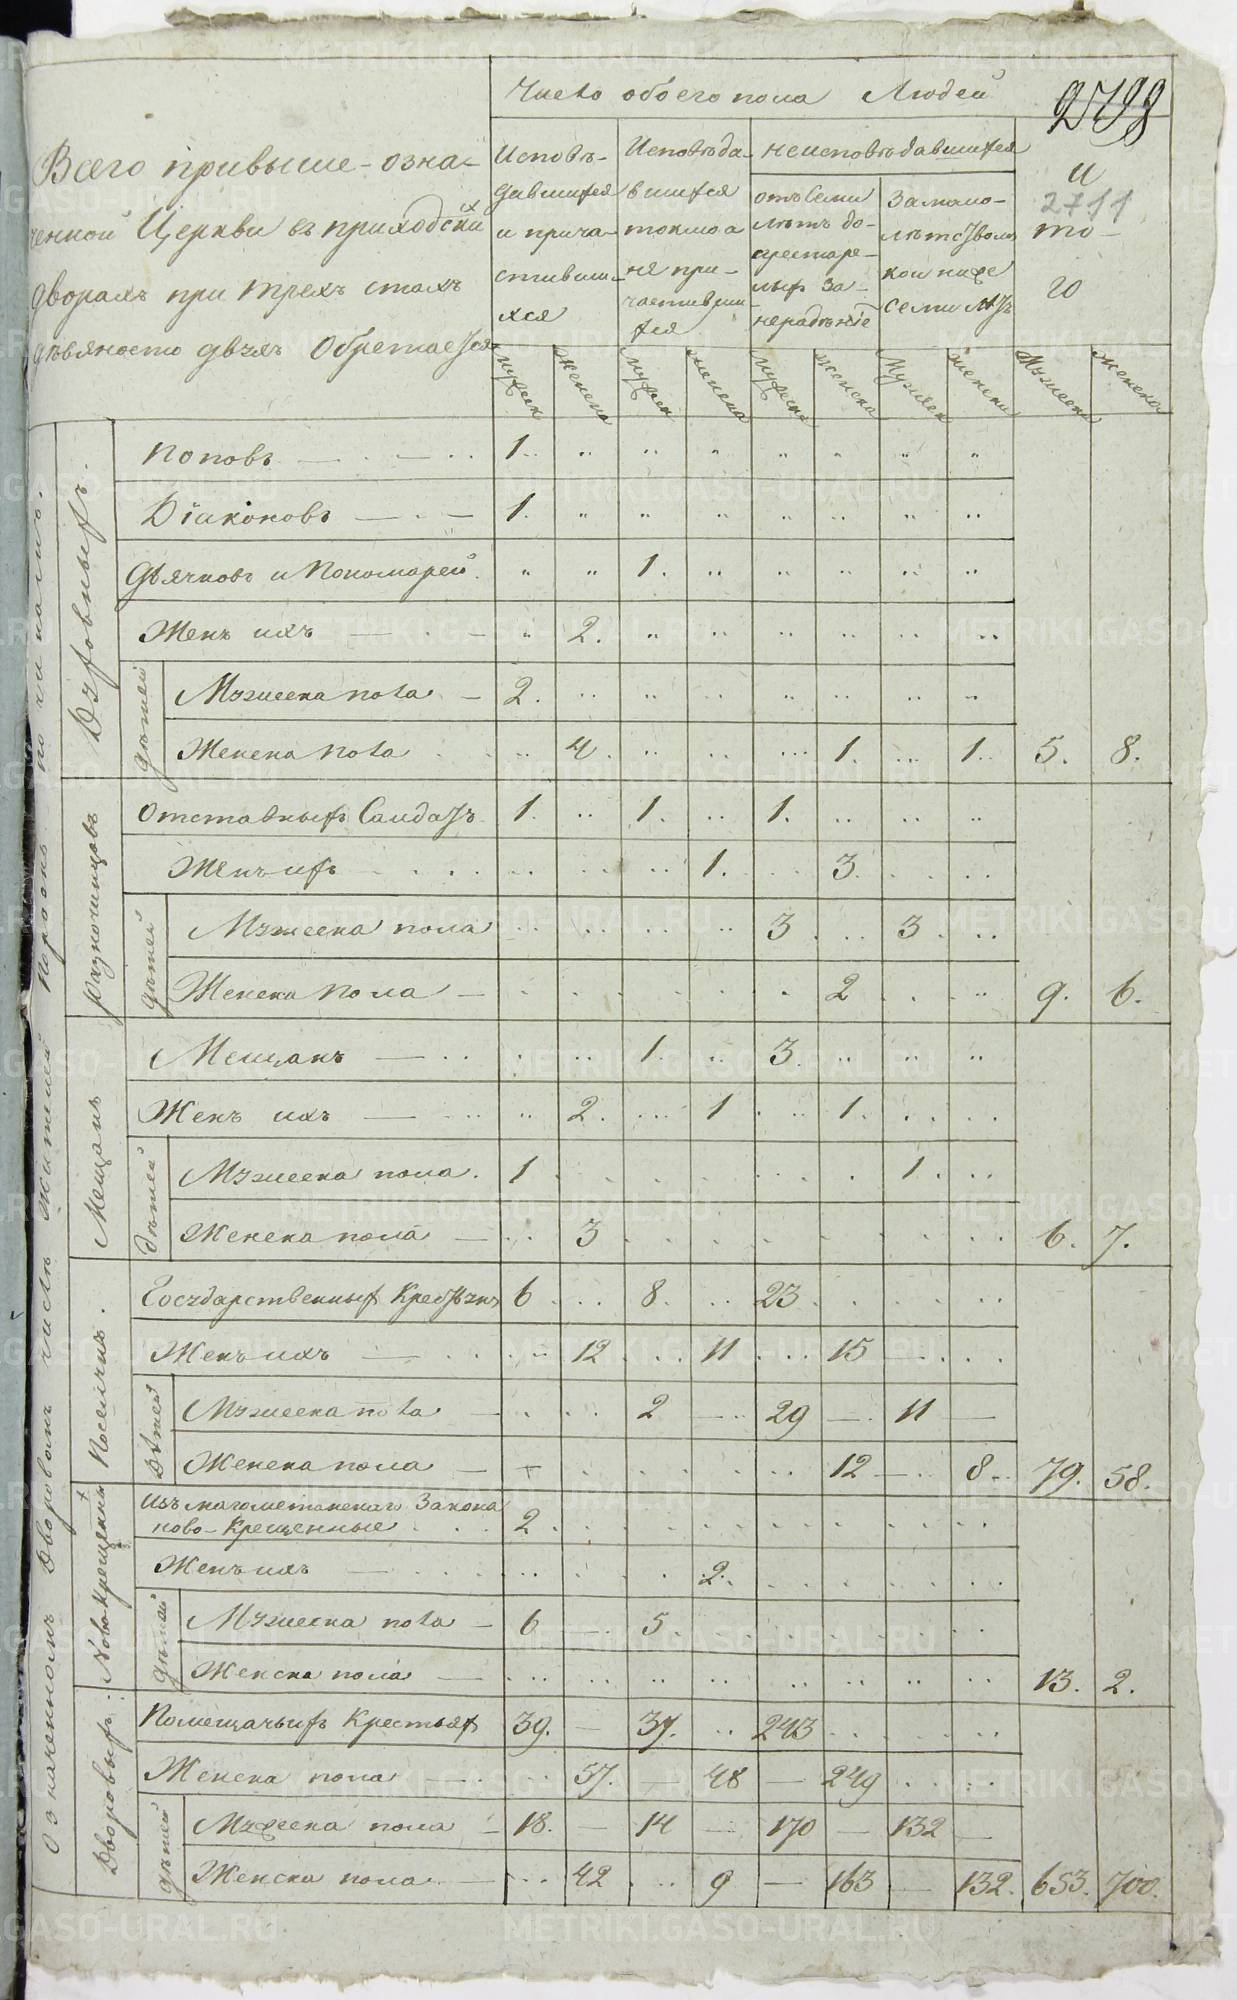 Число обоего пола Людей
2799
Всего привыше-озна-
ченной Церкви въ приходскихъ
дворахъ при трехъ стахъ
девяносто двухъ Обретается
Исповѣ-
давшихся
и прича-
стивши-
хся
Исповѣда-
вшихся
токмо а
не при-
частивших
ся
неисповѣдавшихся
отъ Семи
лѣтъ до
престаре-
лыхъ за
нерадѣнiе
За мало-
лѣтством
кои ниже
семи лѣтъ
и
2711
то-
го
мужеск женска мужеск женска мужеска женска мужеск женска мужеска женска
Означенномъ Дворовомъ числѣ Жителей порознь по чинамъ.
Духовныхъ.
Поповъ 1.
Дiаконовъ 1.
Дьячковъ и Пономарей. 1.
Женъ ихъ 2.
дѣтей
Мужеска пола 2.
Женска пола 4. 1. 1. 5. 8.
Разночинцовъ
Отставныхъ Салдатъ 1. 1. 1.
Женъ ихъ 1. 3.
дѣтей
Мужеска пола 3 3
Женска пола 2 9. 6.
Мещанъ
Мещанъ 1. 3.
Женъ ихъ 2. 1 1.
дѣтей
Мужеска пола. 1 1.
Женска пола 3 6. 7.
Поселянъ.
Государственныхъ Крестьянъ 6 8. 23
Женъ ихъ 12 11 15
Дѣтей
Мужеска пола 2 29 11
Женска пола 12 8 79. 58.
Ново-Крещенных
Изъ магометанскаго Закона
ново-Крещенные 2
Женъ ихъ 2.
дѣтей
Мужеска пола 6 5.
Женска пола 13. 2.
Дворовыхъ.
Помещачьихъ Крестьян 39. 37. 243
Женска пола 57. 48 249
дѣтей
Мужеска пола 18. 14 170 132
Женска пола 42 9 163 132. 653. 700.
METRIKI.GASO-URAL.RU